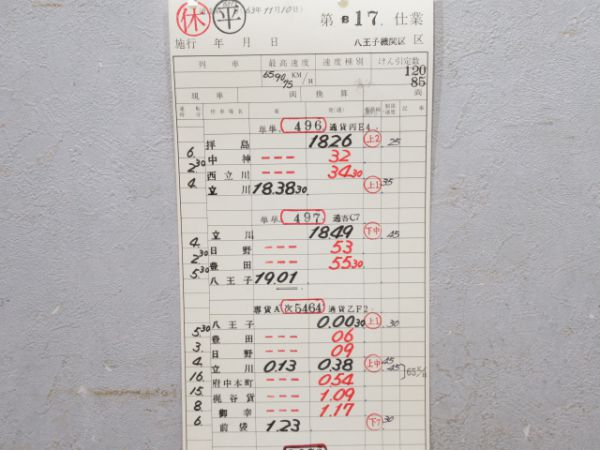 休 平 63年11月10日) 第 B17. 仕業
施行 年 月 日 八王子機関区 区
列車 最高速度 速度種別 けん引定数
65 90 75 KM/H 120 85
現車 両 換算 両
停車場名 着 発(通) 制限速度 記事
単単. 496 通貨丙E4.
6. 拝島 1826 上2 25
2 30 中神 --- 32
4. 西立川 --- 34 30
立川 18.38 30 上1 35
単単. 497 通客C7
立川 1849 下中 45
4. 日野 --- 53
2 30 豊田 --- 55 30
5 30 八王子 19.01
専貨A 次5464 通貨乙F2
八王子 0.00 30 上1 30
5 30 豊田 --- 06
3. 日野 --- 09
4. 立川 0.13 0.38 上中 45 45
16. 府中本町 --- 0.54
15. 梶ヶ谷貨 --- 1.09
8. 御幸 --- 1.17
6 前袋 1.23 下7 30